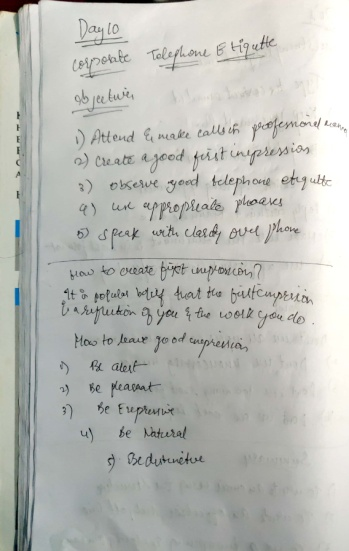 Day 10
Corporate Telephone Etiqutte
Objectives
1) Attend & make calls in professional manner
2) Create a good first inpression
3) observe good telephone etiqutte
4) use appropriate phrases
5) speak with clardy over phone
How to create first impression?
It is popular belief that the first impression
is a reflection of you & the work you do.
How to leave good impression
1) Be alert
2) Be pleasant
3) Be Expressive
4) Be Natural
5) Be distinctive